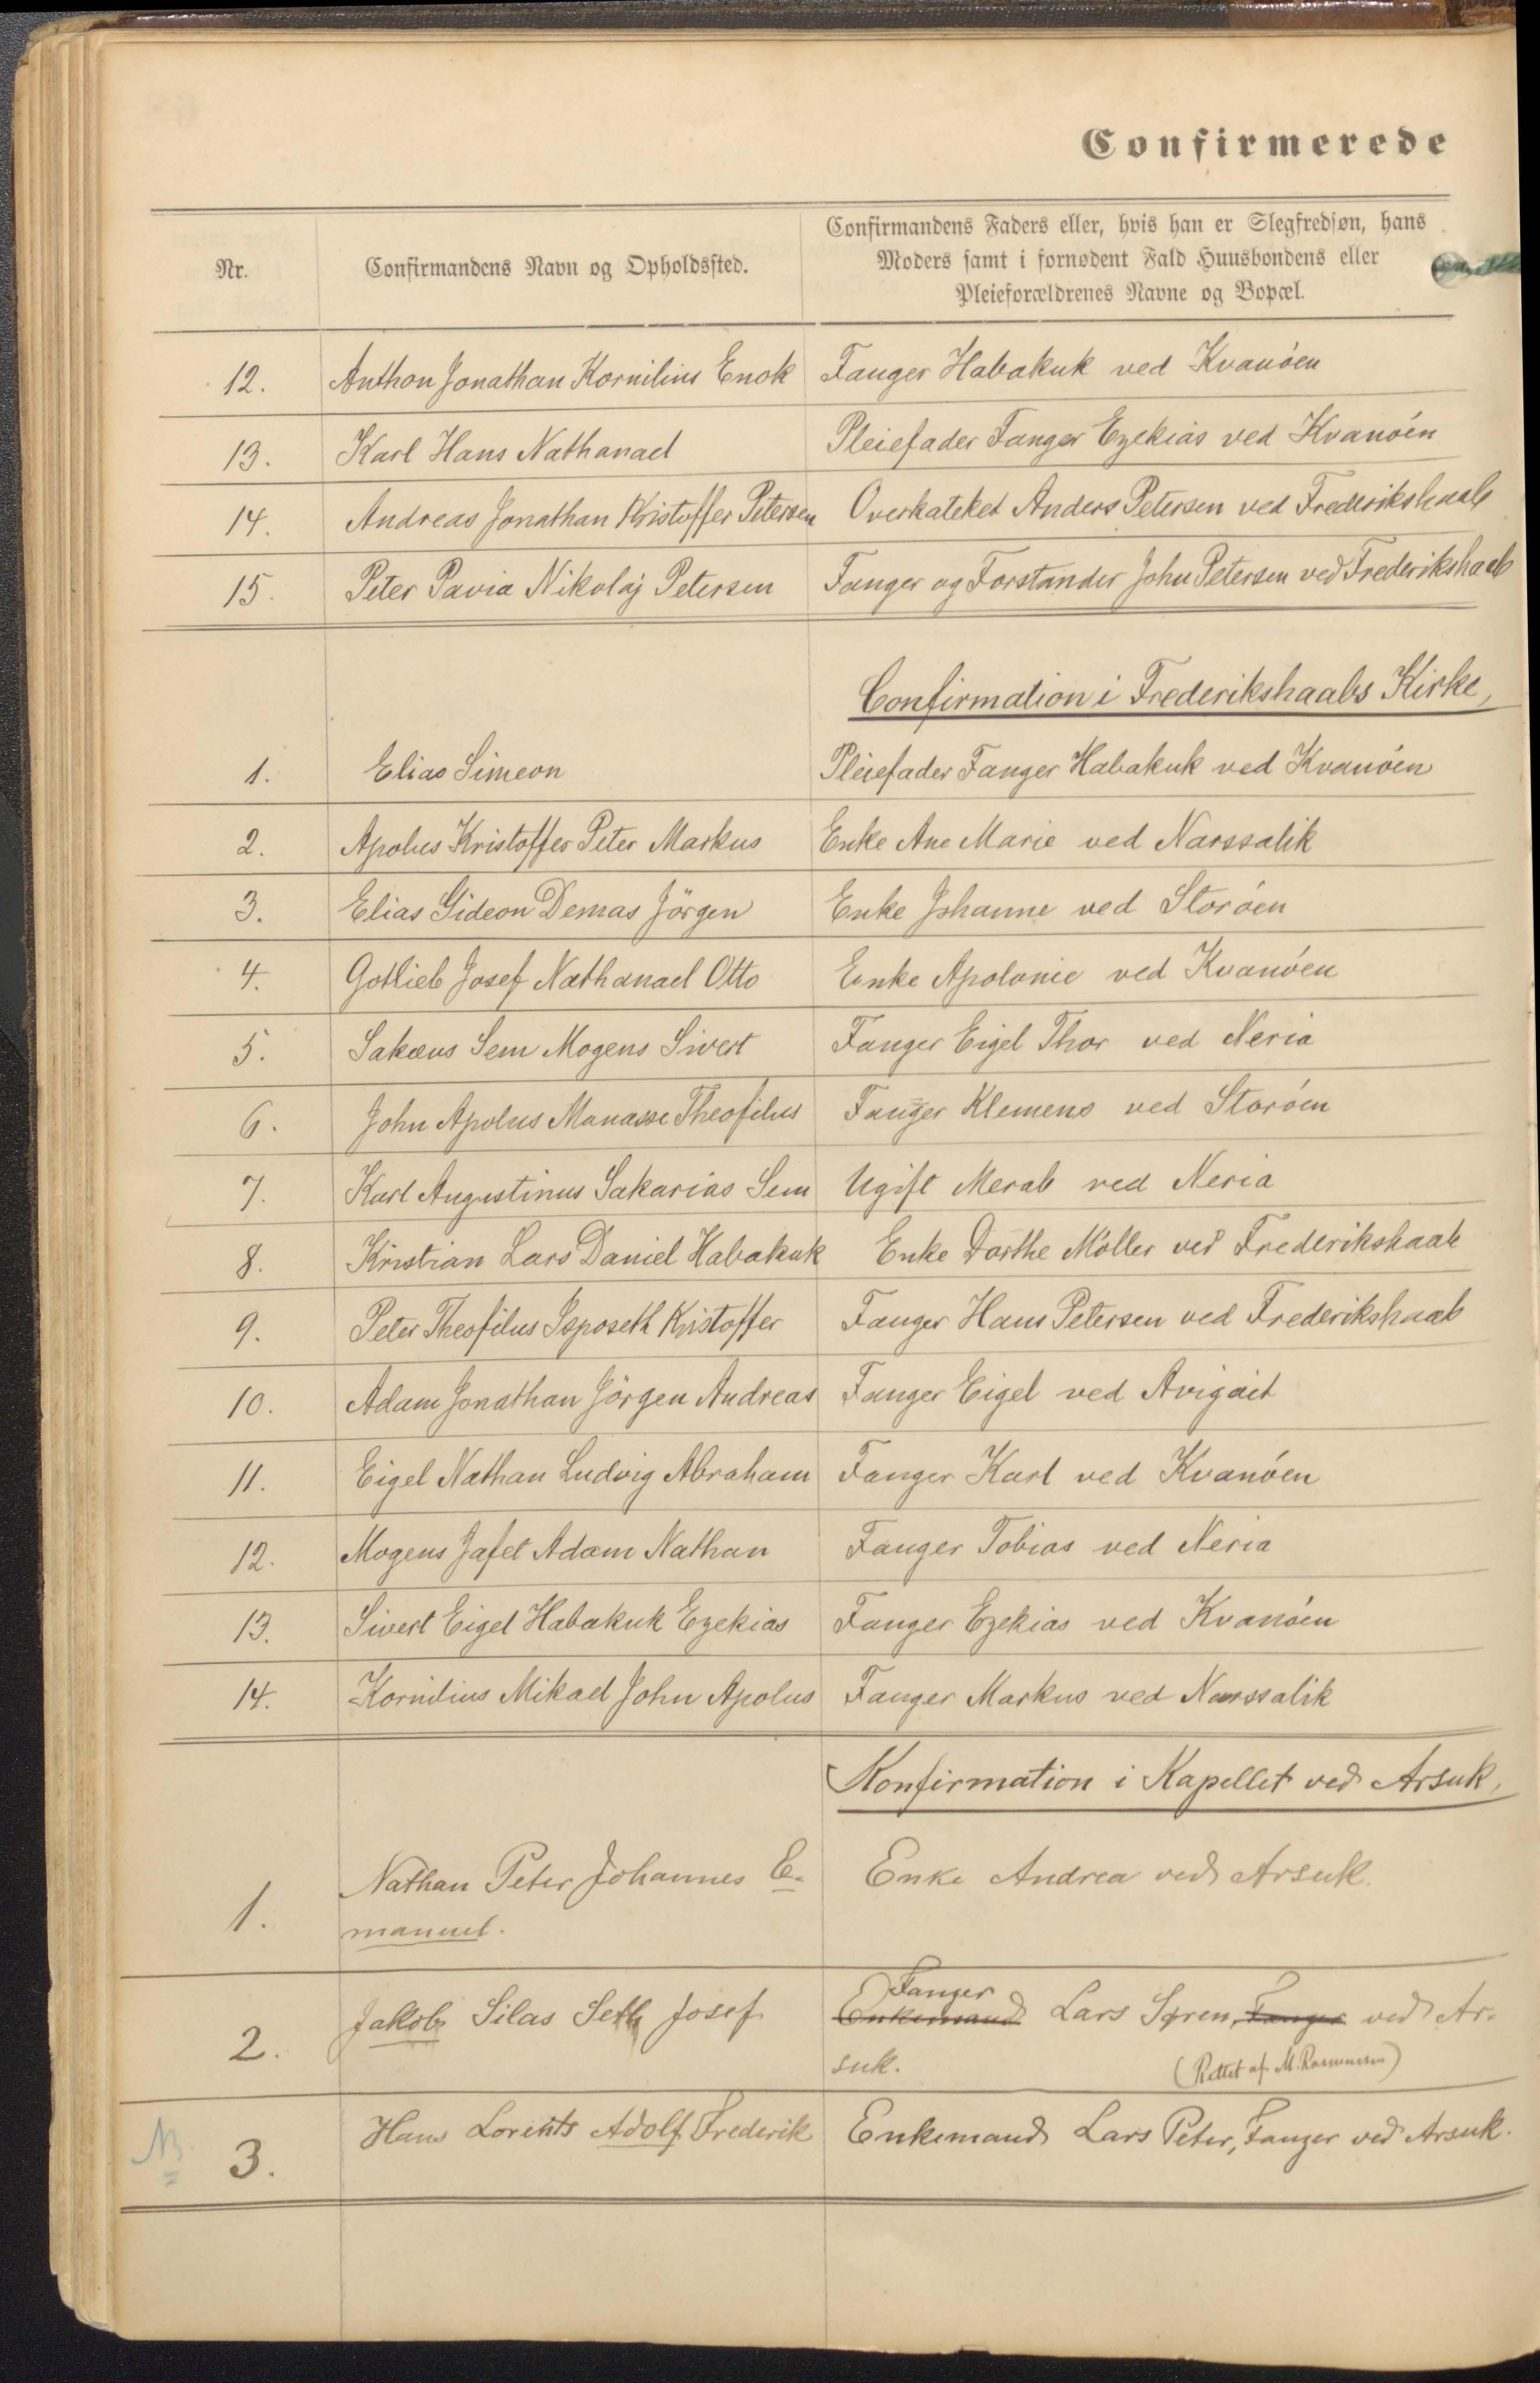 Confirmerede
Nr.
Confirmandens Navn og Opholdssted.
Confirmandens Faders eller, hvis han er Slegfredsøn, hans
Moders samt i fornødent Fald Huusbondens eller
Pleieforældrenes Navne og Bopæl.
12. Anthon Jonathan Kornilius Enok Fanger Habakuk ved Kvanöen
13. Karl Hans Nathanael Pleiefader Fanger Ezekias ved Kvanöen
14. Andreas Jonathan Kristoffer Petersen Overkateket Anders Petersen ved Frederikshaab
15. Peter Pavia Nikolaj Petersen Fanger og Forstander John Petersen ved Frederikshaab
Confirmation i Frederikshaabs Kirke,
1. Elias Simeon Pleiefader Fanger Habakuk ved Kvanöen
2. Apolus Kristoffer Peter Markus Enke Ane Marie ved Narssalik
3. Elias Gideon Demas Jörgen Enke Johanne ved Storöen
4. Gotlieb Josef Nathanael Otto Enke Apolonie ved Kvanöen
5. Sakæus Sem Mogens Sivert Fanger Eigel Thor ved Neria
6. John Apolus Manasse Theofilus Fanger Klemens ved Storöen
7. Karl Augustinus Sakarias Sem Ugift Merab ved Neria
8. Kristian Lars Daniel Habakuk Enke Dorthe Möller ved Frederikshaab
9. Peter Theofilus Kristoffer Fanger Hans Petersen ved Frederikshaab
10. Adam Jonathan Jörgen Andreas Fanger Eigel ved Avigait
11. Eigel Nathan Ludvig Abraham Fanger Karl ved Kvanöen
12. Mogens Jafet Adam Nathan Fanger Tobias ved Neria
13. Sivert Eigel Habakuk Ezekias Fanger Ezekias ved Kvanöen
14. Kornilius Mikael John Apolus Fanger Markus ved Narssalik
Konfirmation i Kapellet ved Arsuk,
1. Nathan Peter Johannes E- Enke Andrea ved Arsuk.
manuel.
Fanger
2. Jakob Silas Seth Josef Enkemand Lars Søren, Fanger ved Ar-
suk. (Rettet af M. Rasmussen)
NB. 3. Hans Lorents Adolf Frederik Enkemand Lars Peter, Fanger ved Arsuk.